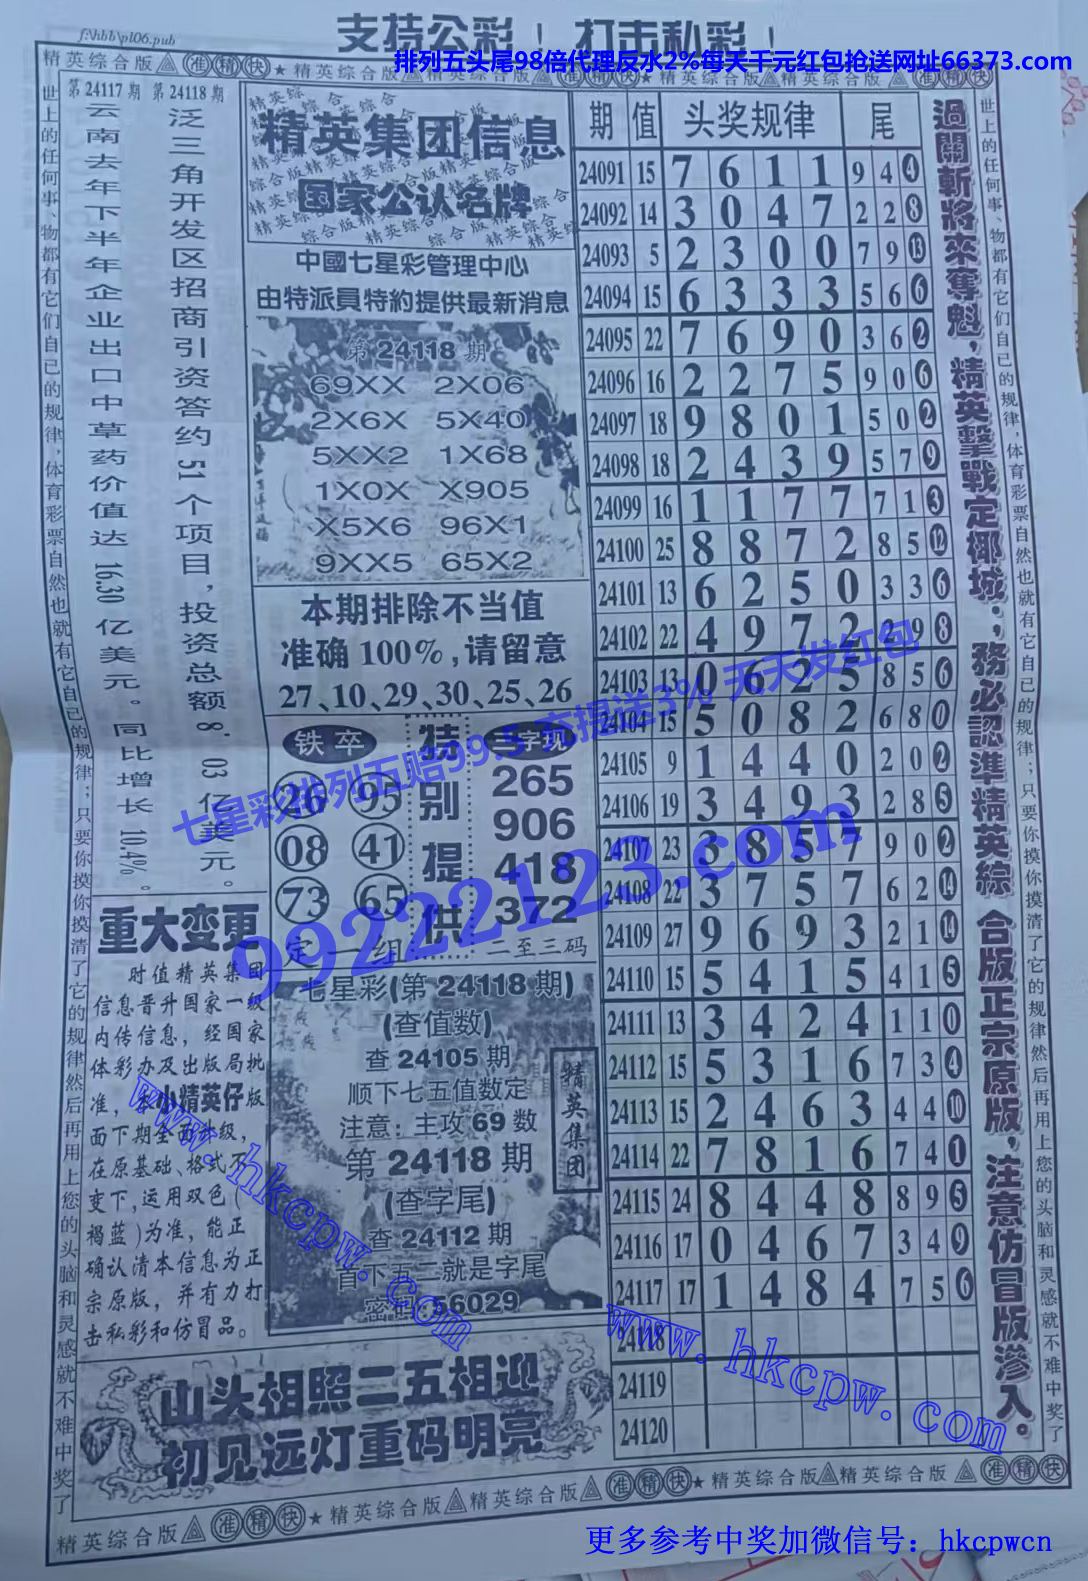 f:\hbb\pl06.pub
支持公彩！打击私彩！
排列五头尾98倍代理反水2%每天千元红包抢送网址66373.com
精英综合版 准精快 ★ 精英综合版 精英综合版 准精快 ★ 精英综合版
世上的任何事、物都有它们自己的规律，体育彩票自然也就有它自己的规律；只要你摸你摸清了它的规律然后再用上您的头脑和灵感就不难中奖了
第24117期
云南去年下半年企业出口中草药价值达16.30亿美元。同比增长10.4%。
第24118期
泛三角开发区招商引资答约51个项目，投资总额8.03亿美元。
精英集团信息
国家公认名牌
中國七星彩管理中心
由特派員特約提供最新消息
第24118期
69XX 2X06
2X6X 5X40
5XX2 1X68
1X0X X905
X5X6 96X1
9XX5 65X2
本期排除不当值
准确100%,请留意
27、10、29、30、25、26
铁卒
26 95
08 41
73 65
定一组
特别提供
三字现
265
906
418
372
二至三码
重大变更
时值精英集团
信息晋升国家一级
内传信息，经国家
体彩办及出版局批
准，本小精英仔版
面下期全面升级，
在原基础、格式不
变下,运用双色(
褐蓝)为准，能正
确认清本信息为正
宗原版，并有力打
击私彩和仿冒品。
七星彩(第24118期)
(查值数)
查24105期
顺下七五值数定
注意：主攻69数
第24118期
(查字尾)
查24112期
首下五二就是字尾
密码:56029
精英集团
山头相照二五相迎
初见远灯重码明亮
期 值 头奖规律 尾
24091 15 7 6 1 1 9 4 4
24092 14 3 0 4 7 2 2 8
24093 5 2 3 0 0 7 9 13
24094 15 6 3 3 3 5 6 6
24095 22 7 6 9 0 3 6 2
24096 16 2 2 7 5 9 0 6
24097 18 9 8 0 1 5 0 2
24098 18 2 4 3 9 5 7 9
24099 16 1 1 7 7 7 1 3
24100 25 8 8 7 2 8 5 12
24101 13 6 2 5 0 3 3 6
24102 22 4 9 7 2 2 9 8
24103 13 0 6 2 5 8 5 6
24104 15 5 0 8 2 6 8 0
24105 9 1 4 4 0 2 0 2
24106 19 3 4 9 3 2 8 5
24107 23 3 8 5 7 9 0 2
24108 22 3 7 5 7 6 2 14
24109 27 9 6 9 3 2 1 14
24110 15 5 4 1 5 4 1 5
24111 13 3 4 2 4 1 1 0
24112 15 5 3 1 6 7 3 4
24113 15 2 4 6 3 4 4 10
24114 22 7 8 1 6 7 4 1
24115 24 8 4 4 8 8 9 5
24116 17 0 4 6 7 3 4 9
24117 17 1 4 8 4 7 5 6
24118
24119
24120
過關斬將來奪魁，精英擊戰定椰城；務必認準精英綜合版正宗原版，注意仿冒版滲入。
世上的任何事、物都有它们自己的规律，体育彩票自然也就有它自己的规律；只要你摸你摸清了它的规律然后再用上您的头脑和灵感就不难中奖了
七星彩排列五赔99.5 充提送3% 天天发红包
99222123.com
www.hkcpw.com
www.hkcpw.com
精英综合版 准精快 ★ 精英综合版 精英综合版 准精快 ★ 精英综合版 精英综合版 准精快
更多参考中奖加微信号：hkcpwcn